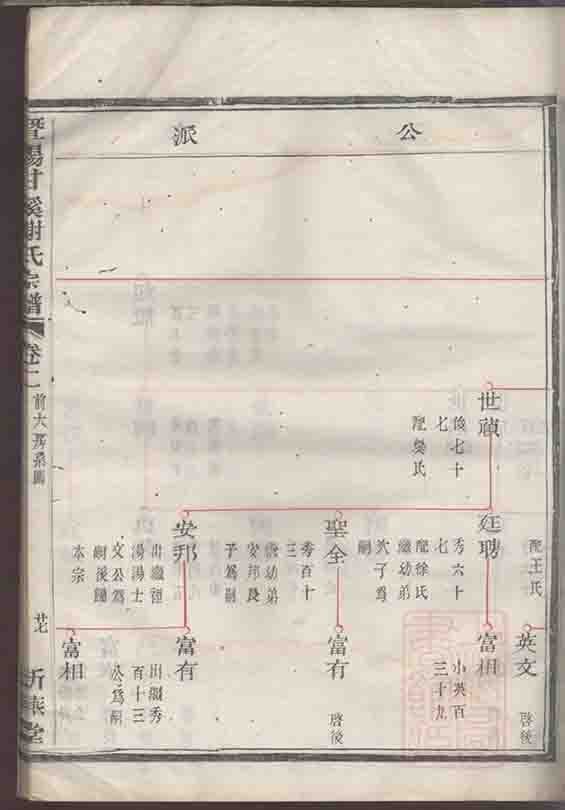 公
派
世頑
俊七十
七
配樊氏
配王氏
英文
啓後
廷聘
秀六十
七
配徐氏
繼幼弟
次子爲
嗣
富相
小英百
三十九
聖全
秀百十
三
繼幼弟
安邦長
子爲嗣
富有
啓後
安邦
出繼徑
湯湯士
文公爲
嗣後歸
本宗
富有
出繼秀
百十三
公爲嗣
富相
暨陽甘溪謝氏宗譜
卷二
前大房系圖
廿七